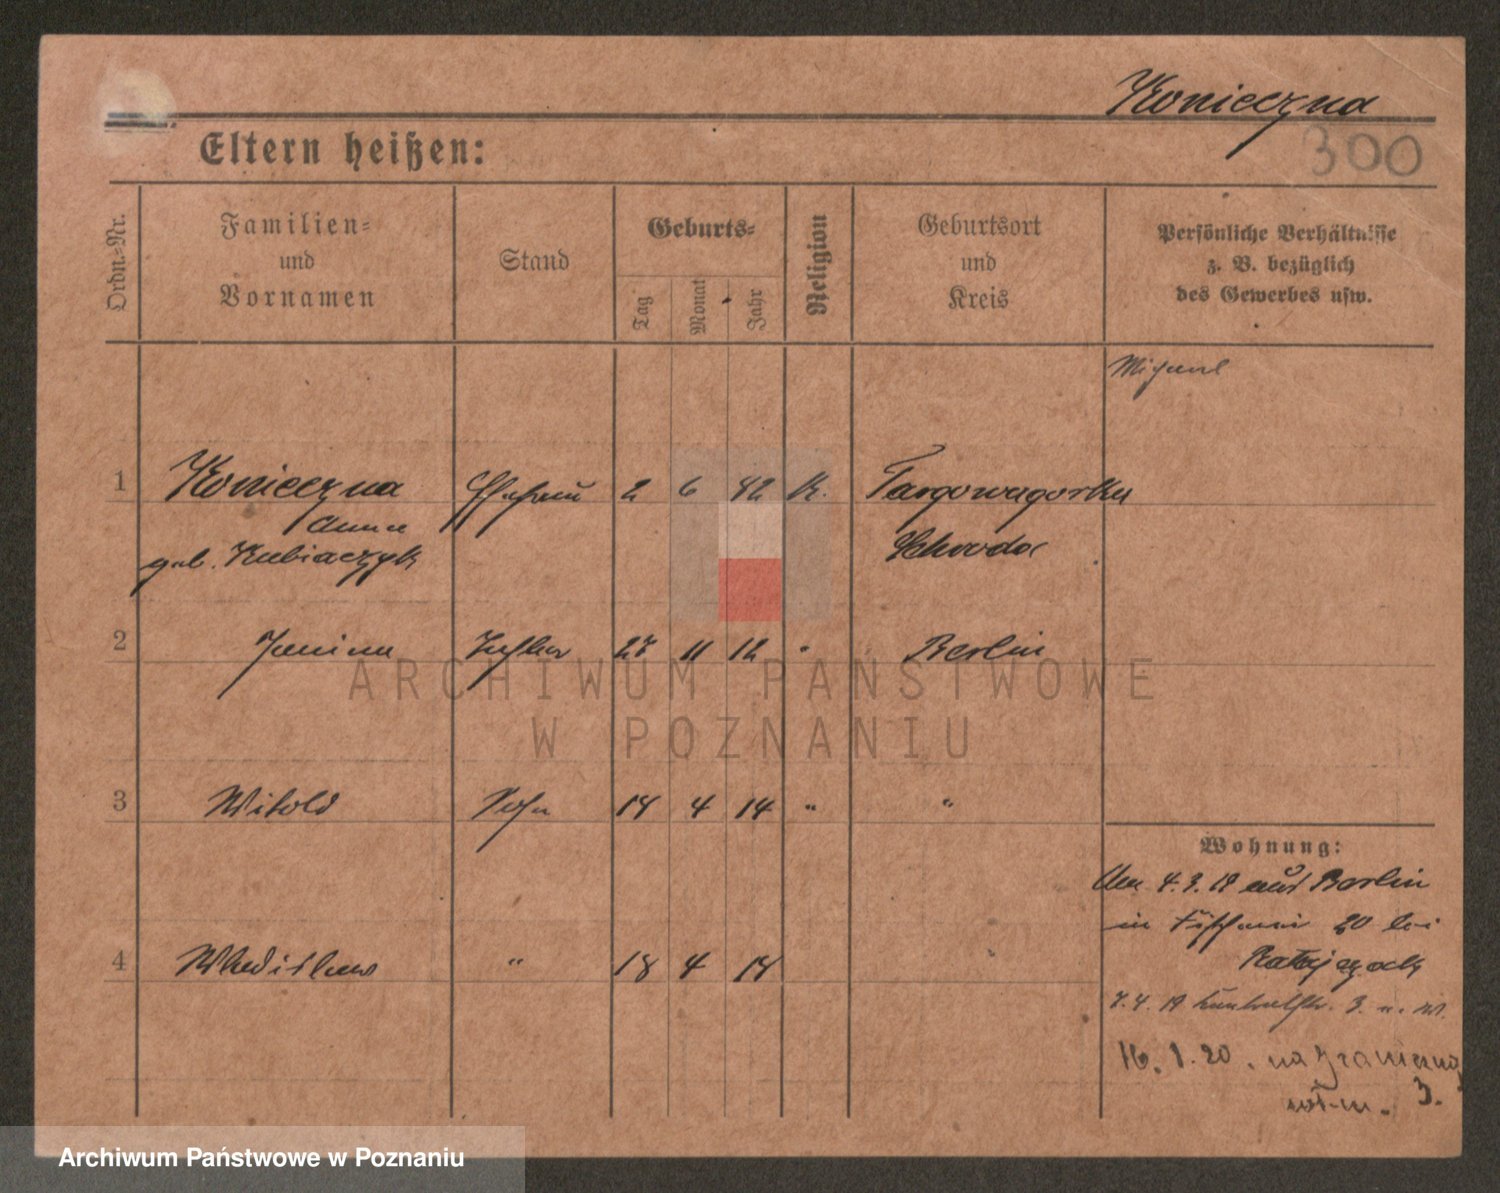 Konieczna
300
Eltern heißen:
Ordn.-Nr.
Familien-
und
Vornamen
Stand
Geburts-
Tag
Monat
Jahr
Religion
Geburtsort
und
Kreis
Persönliche Verhältnisse
z. B. bezüglich
des Gewerbes usw.
1 Konieczna Ehefrau 2 6 82 K. Targowagorka
Anna Schroda
geb. Kubiaczyk
2 Janina Tochter 27 11 12 " Berlin
3 Witold Sohn 18 4 14 " "
4 Wladislaus " 18 4 14
Wohnung:
Am 4.3.19 aus Berlin
in 20 bei
Ratajczak
7.4.19 3.
16.1.20. na Graniczną
3.
ARCHIWUM PAŃSTWOWE
W POZNANIU
Archiwum Państwowe w Poznaniu